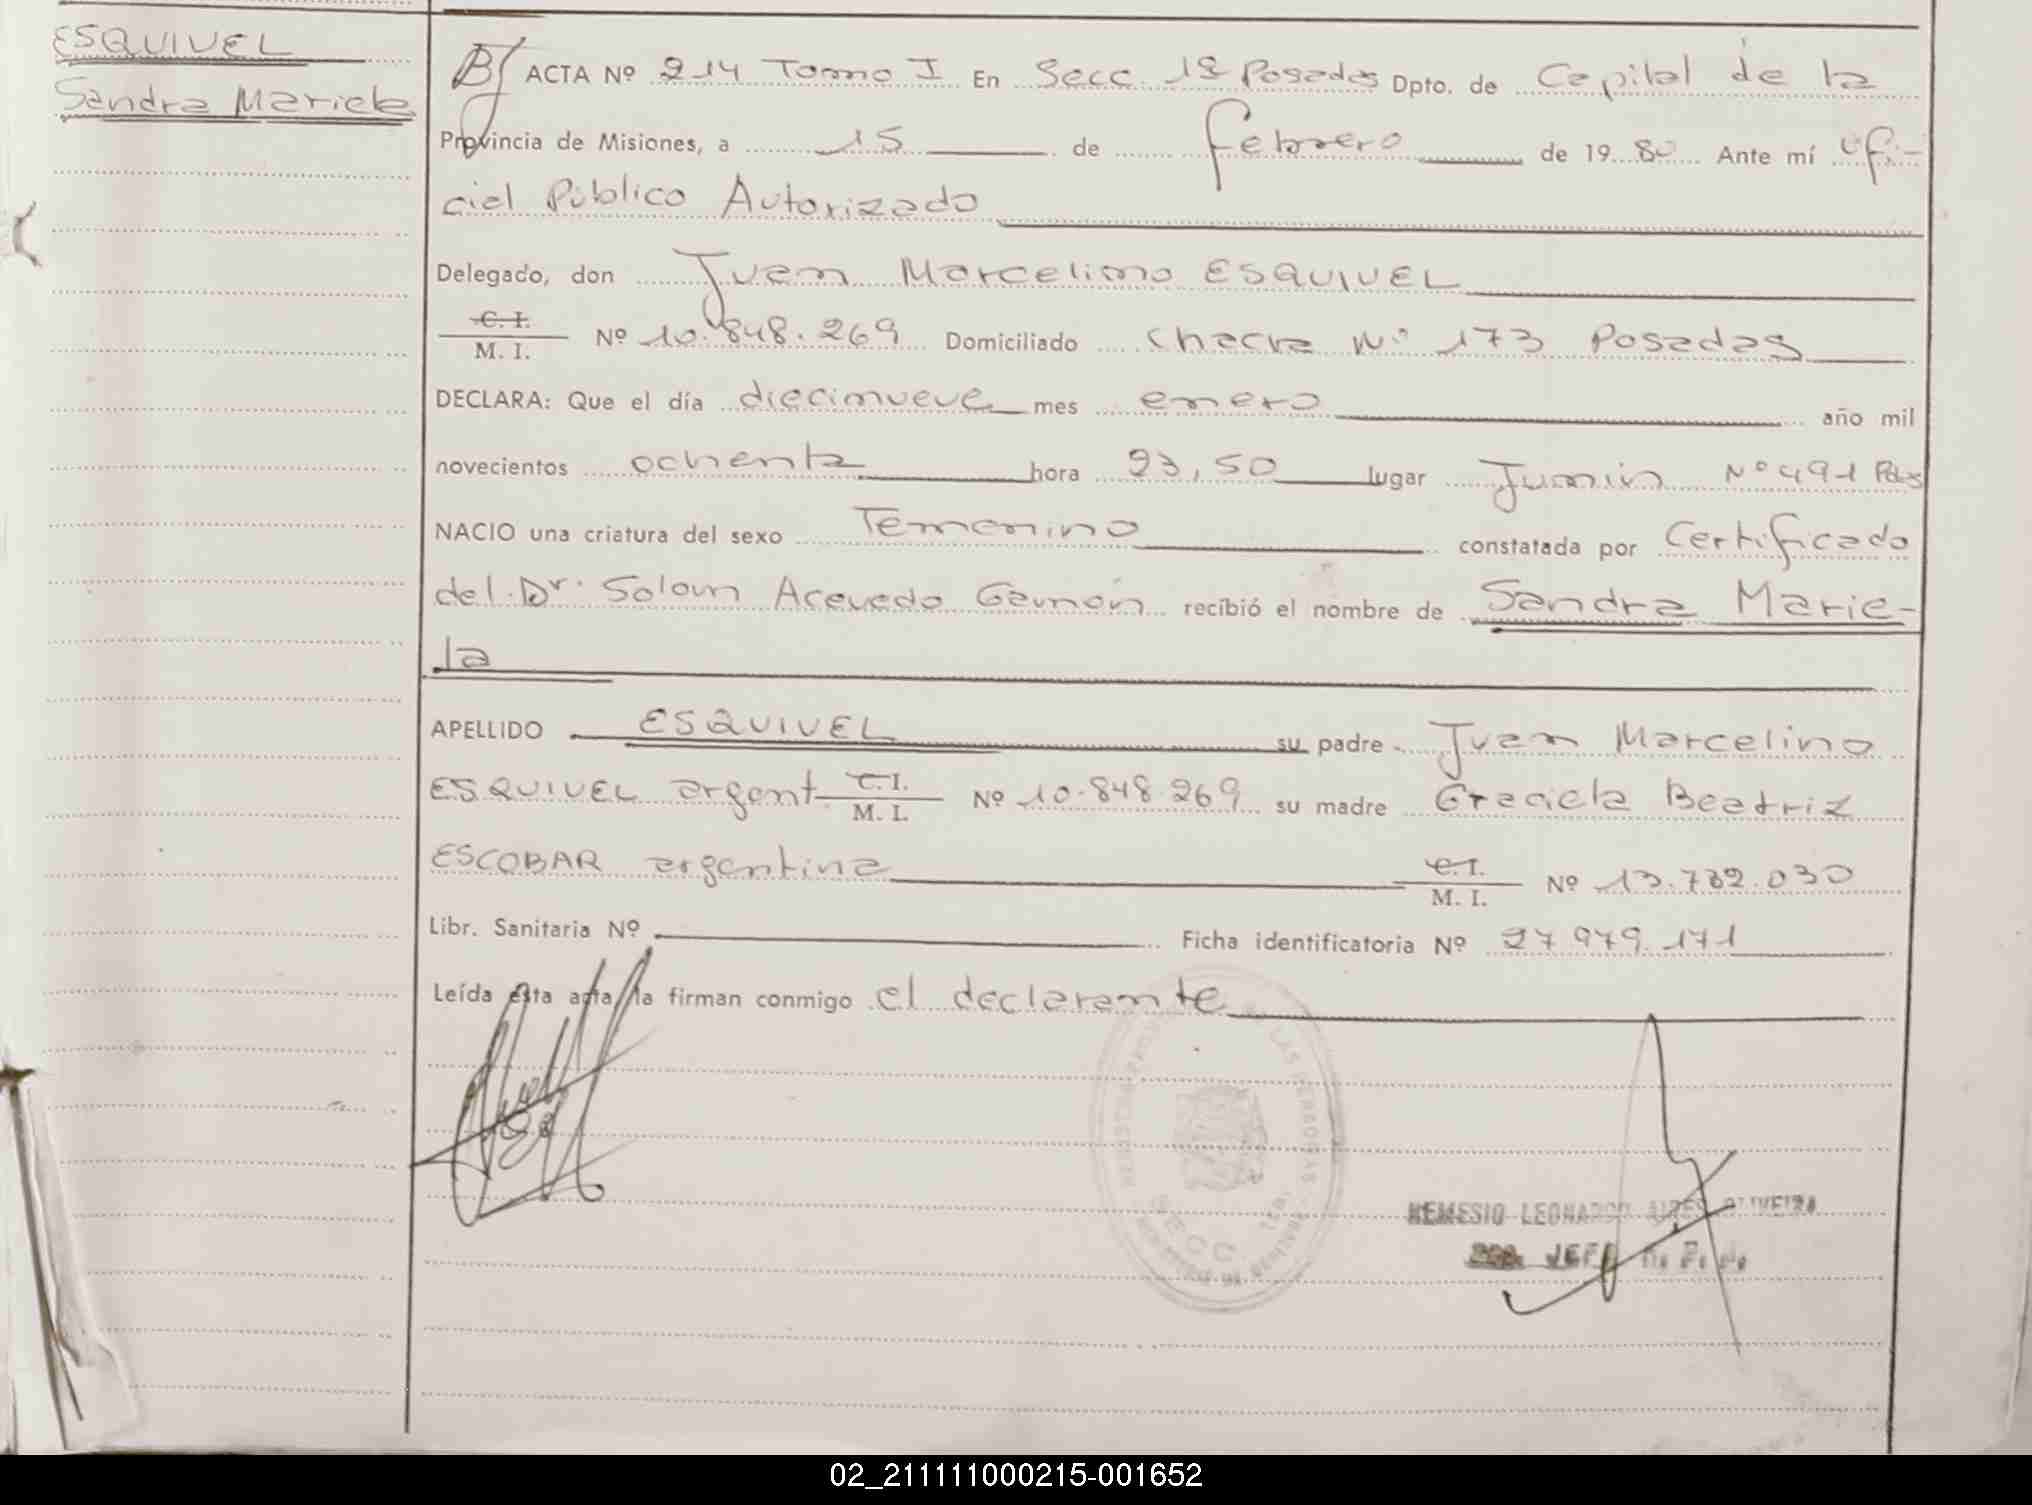 ESQUIVEL
Sandra Mariela
ACTA Nº 214 Tomo I En Secc. 1ª Posadas Dpto. de Capital de la
Provincia de Misiones, a 15 de febrero de 1980 Ante mí Ofi-
cial Público Autorizado
Delegado, don Juan Marcelino ESQUIVEL
C. I.
M. I. Nº 10.848.269 Domiciliado Chacra Nº 173 Posadas
DECLARA: Que el día diecinueve mes enero año mil
novecientos ochenta hora 23,50 lugar Junín Nº 491 Pdas
NACIO una criatura del sexo Femenino constatada por Certificado
del Dr. Acevedo recibió el nombre de Sandra Marie-
la
APELLIDO ESQUIVEL su padre Juan Marcelino
ESQUIVEL argent. C. I.
M. I. Nº 10.848.269 su madre Graciela Beatriz
ESCOBAR argentina C. I.
M. I. Nº 13.732.030
Libr. Sanitaria Nº Ficha identificatoria Nº 27.979.171
Leída esta acta la firman conmigo el declarante
NEMESIO LEONARDO AIRES OLIVEIRA
JEFE R. P. P.
02_211111000215-001652